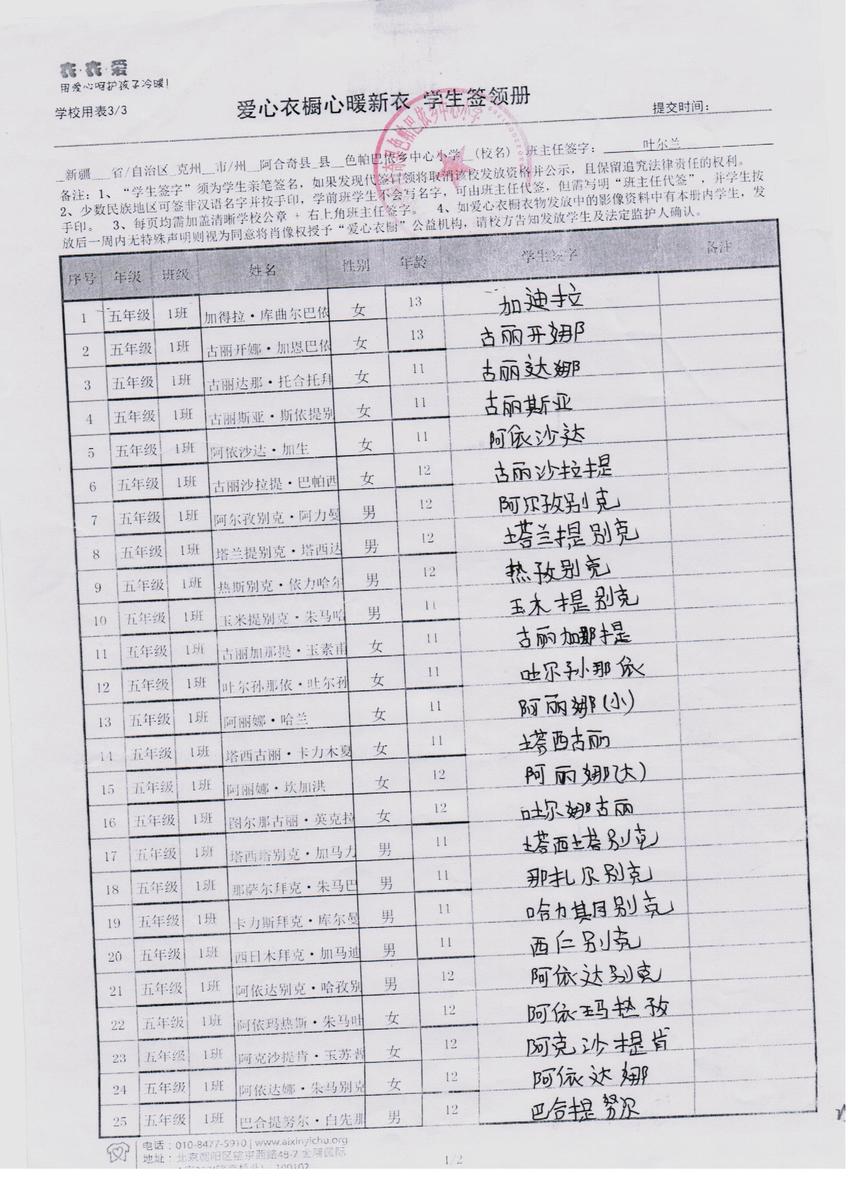 衣·衣·爱
用爱心呵护孩子冷暖!
学校用表3/3
爱心衣橱心暖新衣 学生签领册
提交时间:
新疆 省/自治区 克州 市/州 阿合奇县 县 色帕巴依乡中心小学 (校名) 班主任签字: 叶尔兰
备注:1、“学生签字”须为学生亲笔签名,如果发现代签冒领将取消该校发放资格并公示,且保留追究法律责任的权利。
2、少数民族地区可签非汉语名字并按手印,学前班学生不会写名字,可由班主任代签,但需写明“班主任代签”,并学生按
手印。 3、每页均需加盖清晰学校公章 + 右上角班主任签字。 4、如爱心衣橱衣物发放中的影像资料中有本册内学生,发
放后一周内无特殊声明则视为同意将肖像权授予“爱心衣橱”公益机构,请校方告知发放学生及法定监护人确认。
序号 年级 班级 姓名 性别 年龄 学生签字 备注
1 五年级 1班 加得拉·库曲尔巴依 女 13 加迪拉
2 五年级 1班 古丽开娜·加恩巴依 女 13 古丽开娜
3 五年级 1班 古丽达那·托合托拜 女 11 古丽达娜
4 五年级 1班 古丽斯亚·斯依提别 女 11 古丽斯亚
5 五年级 1班 阿依沙达·加生 女 11 阿依沙达
6 五年级 1班 古丽沙拉提·巴帕西 女 12 古丽沙拉提
7 五年级 1班 阿尔孜别克·阿力曼 男 12 阿尔孜别克
8 五年级 1班 塔兰提别克·塔西达 男 12 塔兰提别克
9 五年级 1班 热斯别克·依力哈尔 男 12 热孜别克
10 五年级 1班 玉米提别克·朱马哈 男 11 玉米提别克
11 五年级 1班 古丽加那提·玉素甫 女 11 古丽加那提
12 五年级 1班 吐尔孙那依·吐尔孙 女 11 吐尔孙那依
13 五年级 1班 阿丽娜·哈兰 女 11 阿丽娜(小)
14 五年级 1班 塔西古丽·卡力木夏 女 11 塔西古丽
15 五年级 1班 阿丽娜·坎加洪 女 12 阿丽娜(大)
16 五年级 1班 图尔那古丽·英克拉 女 12 吐尔娜古丽
17 五年级 1班 塔西塔别克·加马力 男 11 塔西塔别克
18 五年级 1班 那萨尔拜克·朱马巴 男 11 那扎尔别克
19 五年级 1班 卡力斯拜克·库尔曼 男 11 哈力其别克
20 五年级 1班 西日木拜克·加马迪 男 11 西仁别克
21 五年级 1班 阿依达别克·哈孜别 男 12 阿依达别克
22 五年级 1班 阿依玛热斯·朱马吐 女 12 阿依玛热孜
23 五年级 1班 阿克沙提肯·玉苏普 女 12 阿克沙提肯
24 五年级 1班 阿依达娜·朱马别克 女 12 阿依达娜
25 五年级 1班 巴合提努尔·白先那 男 12 巴合提努尔
电话:010-8477-5910 | www.aixinyichu.org
地址:北京朝阳区望京西路48-7 金隅国际
1/2